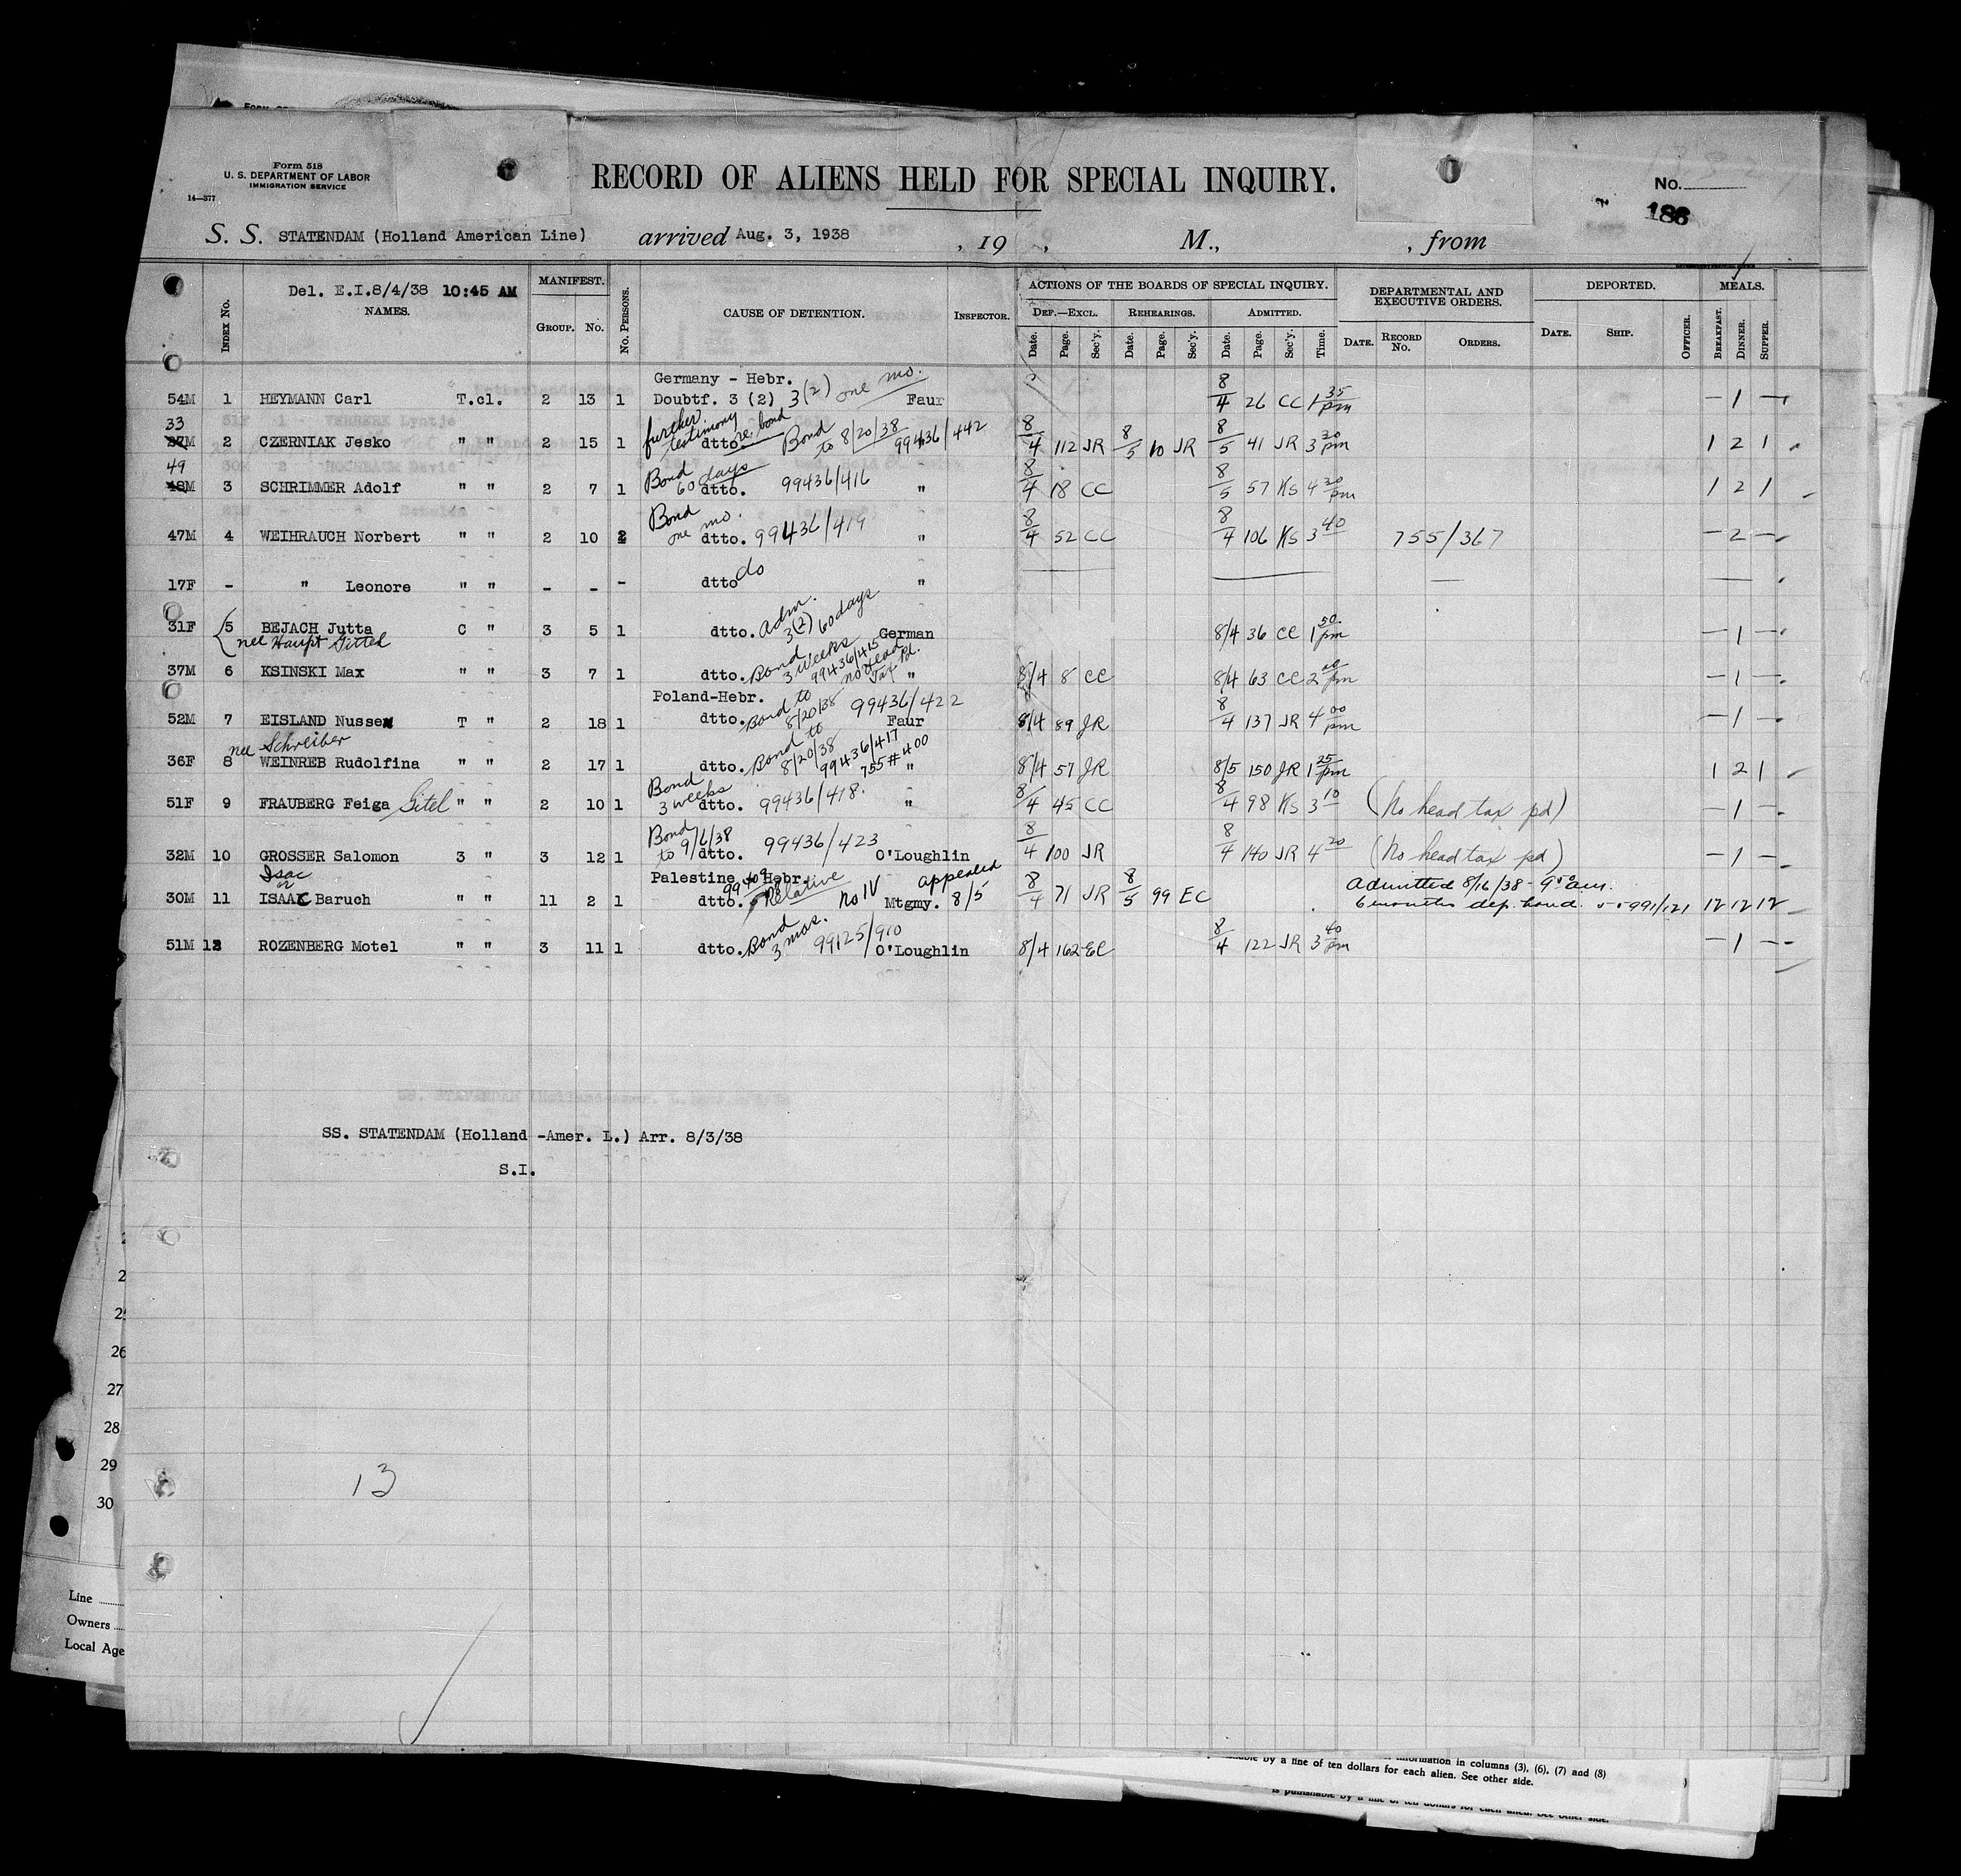 Form 518
U. S. DEPARTMENT OF LABOR
IMMIGRATION SERVICE
14—377
RECORD OF ALIENS HELD FOR SPECIAL INQUIRY.
No.
186
S. S. STATENDAM (Holland American Line) arrived Aug. 3, 1938 , 19 , M., , from
Del. E.I.8/4/38 10:45 AM
INDEX No. NAMES. MANIFEST. GROUP. No. No. PERSONS. CAUSE OF DETENTION. INSPECTOR. ACTIONS OF THE BOARDS OF SPECIAL INQUIRY. DEPARTMENTAL AND EXECUTIVE ORDERS. DEPORTED. MEALS.
DEF.—EXCL. REHEARINGS. ADMITTED.
Date. Page. Sec'y. Date. Page. Sec'y. Date. Page. Sec'y. Time. DATE. RECORD No. ORDERS. DATE. SHIP. OFFICER. BREAKFAST. DINNER. SUPPER.
Germany - Hebr.
54M 1 HEYMANN Carl T.cl. 2 13 1 Doubtf. 3 (2) 3(2) one mo. Faur 8/4 26 CC 1 35 pm — 1 —
33
27M 2 CZERNIAK Jesko " " 2 15 1 further testimony dtto. re. bond Bond to 8/20/38 99436/442 8/4 112 JR 8/5 10 JR 8/5 41 JR 3 30 pm 1 2 1
49
48M 3 SCHRIMMER Adolf " " 2 7 1 Bond 60 days dtto. 99436/416 " 8/4 18 CC 8/5 57 KS 4 30 pm 1 2 1
47M 4 WEIHRAUCH Norbert " " 2 10 2 Bond one mo. dtto. 99436/419 " 8/4 52 CC 8/4 106 KS 3 40 755/367 — 2 —
17F - " Leonore " " - - - dtto do " —
31F 5 BEJACH Jutta C " 3 5 1 dtto. Adm. 3(2) 60 days German 8/4 36 CC 1 50 pm — 1 —
nee Haupt Gittel
37M 6 KSINSKI Max " " 3 7 1 dtto. Bond 3 weeks 99436/415 no Head Tax Pd. " 8/4 8 CC 8/4 63 CC 2 pm — 1 —
Poland-Hebr.
52M 7 EISLAND Nussen T " 2 18 1 dtto. Bond to 8/20/38 99436/422 Faur 8/4 89 JR 8/4 137 JR 4 00 pm — 1 —
nee Schreiber
36F 8 WEINREB Rudolfina " " 2 17 1 dtto. Bond to 8/20/38 99436/417 755#400 " 8/4 57 JR 8/5 150 JR 1 25 pm 1 2 1
51F 9 FRAUBERG Feiga Gitel " " 2 10 1 Bond 3 weeks dtto. 99436/418. " 8/4 45 CC 8/4 98 KS 3 10 (No head tax pd) — 1 —
32M 10 GROSSER Salomon 3 " 3 12 1 Bond to 9/6/38 dtto. 99436/423 O'Loughlin 8/4 100 JR 8/4 140 JR 4 20 (No head tax pd) — 1 —
Isac or
Palestine Hebr.
30M 11 ISAAC Baruch " " 11 2 1 dtto. Relative No IV Mtgmy. appealed 8/5 8/4 71 JR 8/5 99 EC Admitted 8/16/38 - 9 50 am. 6 months dep. bond. 55991/121 12 12 12
51M 12 ROZENBERG Motel " " 3 11 1 dtto. Bond 3 mos. 99125/910 O'Loughlin 8/4 162 EC 8/4 122 JR 3 40 pm — 1 —
SS. STATENDAM (Holland -Amer. L.) Arr. 8/3/38
S.I.
26
27
28
29
30
13
Line
Owners
Local Age
information in columns (3), (6), (7) and (8)
by a fine of ten dollars for each alien. See other side.
is punishable by a fine of ten dollars for each alien. See other side.